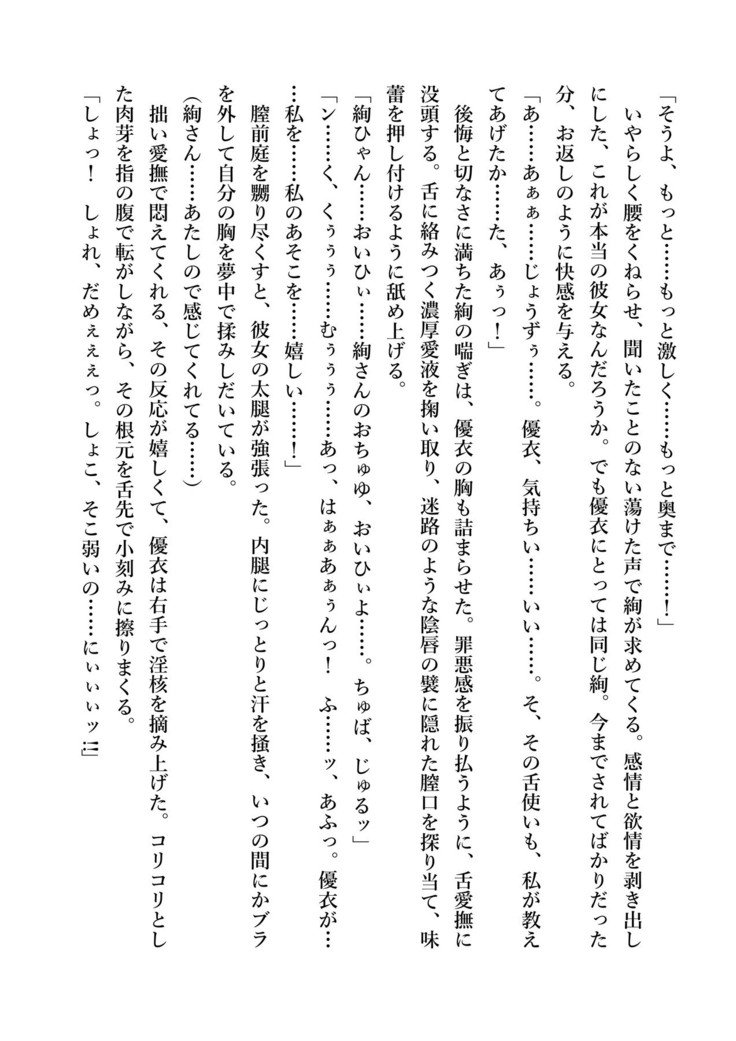 「そうよ、もっと……もっと激しく……もっと奥まで……！」
　いやらしく腰をくねらせ、聞いたことのない蕩けた声で絢が求めてくる。感情と欲情を剥き出し
にした、これが本当の彼女なんだろうか。でも優衣にとっては同じ絢。今までされてばかりだった
分、お返しのように快感を与える。
「あ……あぁぁ……じょうずぅ……。優衣、気持ちい……いい……。そ、その舌使いも、私が教え
てあげたか……た、あぅっ！」
　後悔と切なさに満ちた絢の喘ぎは、優衣の胸も詰まらせた。罪悪感を振り払うように、舌愛撫に
没頭する。舌に絡みつく濃厚愛液を掬い取り、迷路のような陰唇の襞に隠れた膣口を探り当て、味
蕾を押し付けるように舐め上げる。
「絢ひゃん……おいひぃ……絢さんのおちゅゆ、おいひぃよ……。ちゅば、じゅるッ」
「ン……く、くぅぅぅ……むぅぅぅ……あっ、はぁぁあぁぅんっ！　ふ……ッ、あふっ。優衣が…
…私を……私のあそこを……嬉しい……！」
　膣前庭を嬲り尽くすと、彼女の太腿が強張った。内腿にじっとりと汗を掻き、いつの間にかブラ
を外して自分の胸を夢中で揉みしだいている。
（絢さん……あたしので感じてくれてる……）
　拙い愛撫で悶えてくれる、その反応が嬉しくて、優衣は右手で淫核を摘み上げた。コリコリとし
た肉芽を指の腹で転がしながら、その根元を舌先で小刻みに擦りまくる。
「しょっ！　しょれ、だめぇぇぇっ。しょこ、そこ弱いの……にぃぃぃッ!!」